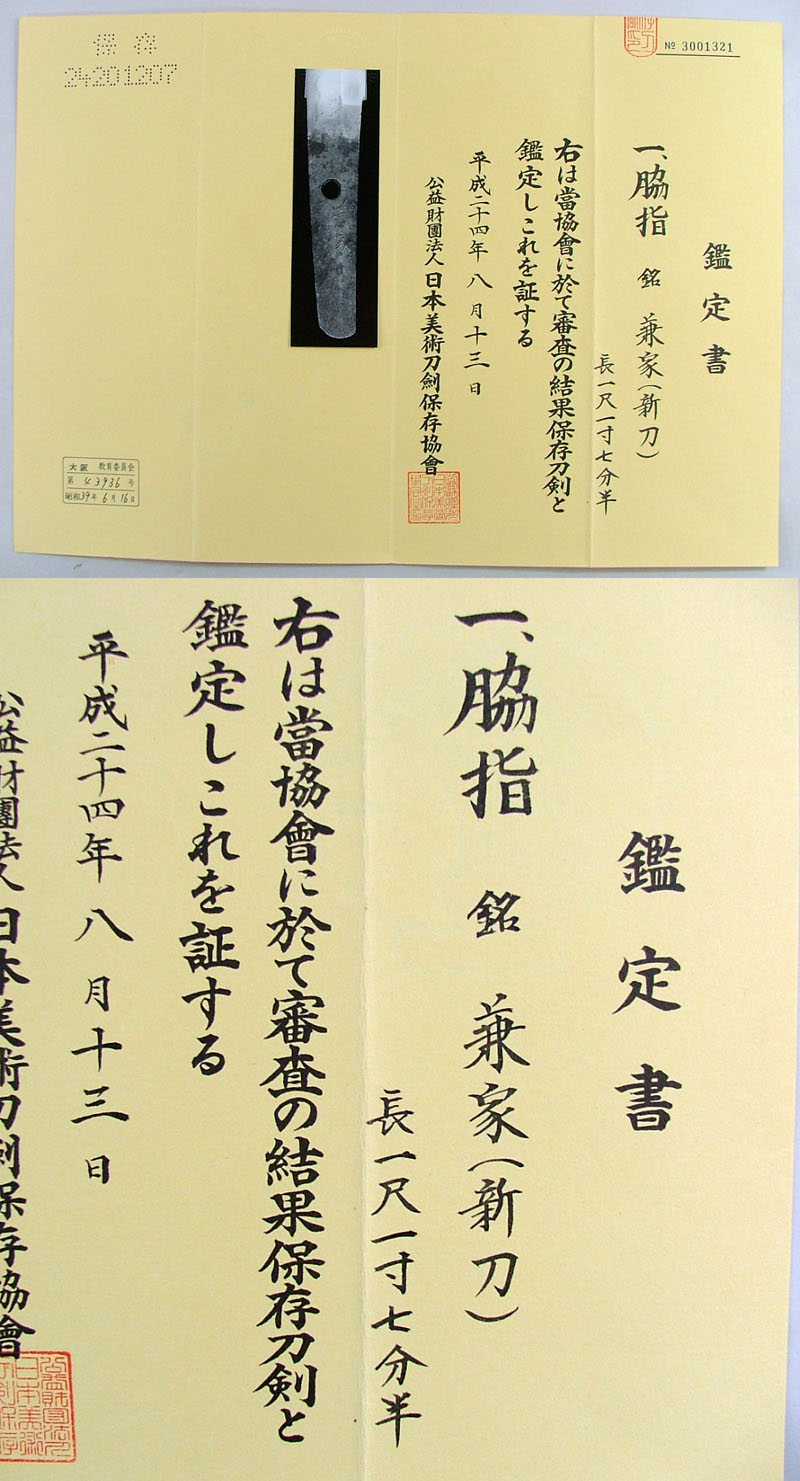 鑑定書
一、脇指 銘 兼家(新刀)
長一尺一寸七分半
右は當協會に於て審査の結果保存刀剣と
鑑定しこれを証する
平成二十四年八月十三日
公益財團法人日本美術刀劍保存協會
№ 3001321
保存
24201207
大阪 教育委員会
第 43936 号
昭和39年6月16日
鑑定書
一、脇指 銘 兼家(新刀)
長一尺一寸七分半
右は當協會に於て審査の結果保存刀剣と
鑑定しこれを証する
平成二十四年八月十三日
公益財團法人日本美術刀劍保存協會